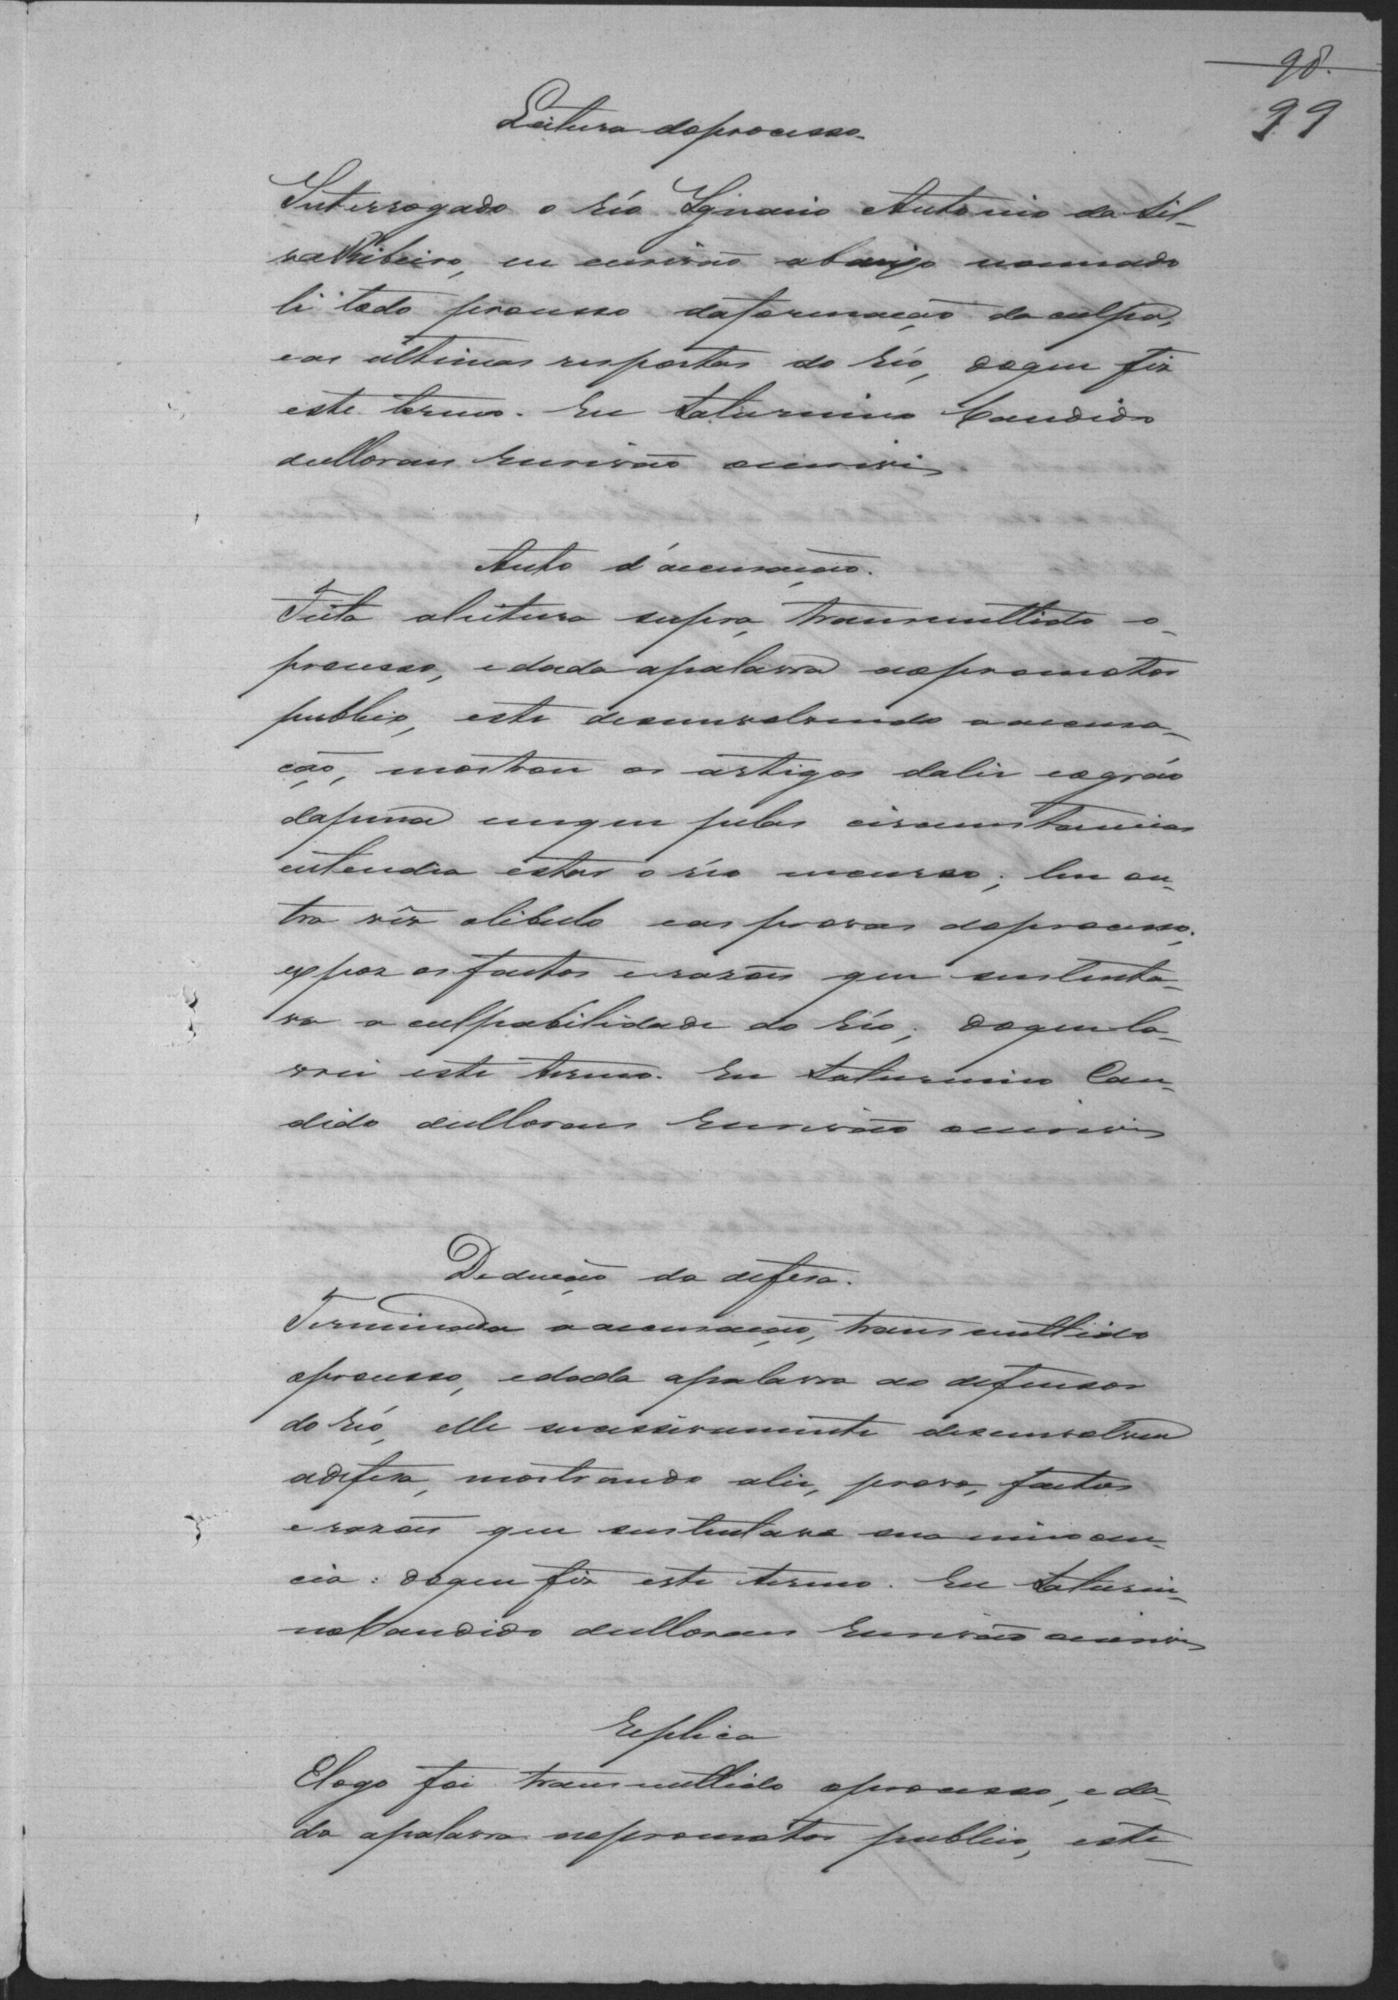 98.
99
Leitura do processo.
Interrogado o Réo Ignacio Antonio da Sil-
va Ribeiro, eu escrivão abaixo nomeado
li todo processo da formação da culpa,
e as ultimas respostas do Réo, do que fiz
este termo. Eu Saturnino Candido
de Moraes Escrivão escrivi
Auto d'accusação.
Feita a leitura supra, transmittido o
processo, e dada a palavra ao promotor
publico, este desenvolvendo a accusa-
ção, mostrou os artigos da lei e o gráo
da pena em que pelas circumstancias
entendia estar o réo incurso; leu ou-
tra vêz o libello e as provas do processo;
expoz os factos e rasões que sustenta-
va a culpabilidade do Réo; do que la-
vrei este termo. Eu Saturnino Can-
dido de Moraes Escrivão escrivi
Deducção da defesa.
Terminada a accusação, transmittido
o processo, e dada a palavra ao defensor
do Réo, elle successivamente desenvolveu
a defesa, mostrando a lei, prova, factos
e rasões que sustentava sua innocen-
cia: do que fiz este termo. Eu Saturni-
no Candido de Moraes Escrivão escrivi
Replica
E logo foi transmittido o processo, e da-
da a palavra ao promotor publico, este